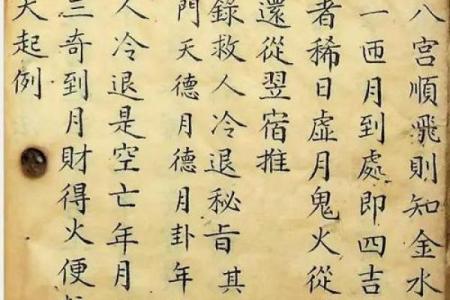 八宮順飛則知金水
一匝月到處即四吉
者稀日虛月鬼火從
還從翌宿推
錄救人冷退秘旨其
門天德月德月卦年
人冷退是空亡年月
三奇到月財得火便
起例